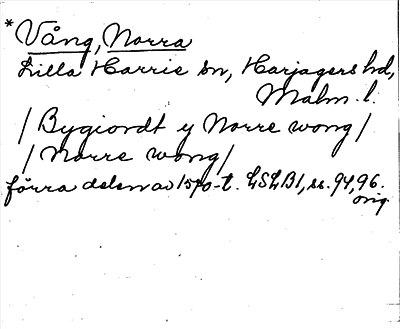 * Vång, Norra
Lilla Harrie sn, Harjagers hd,
Malm. l.
/ Bygiordt y Norre wong /
/ Norre wong /
förra delen av 1570-t. LSLB1, ss. 94, 96.
orig.